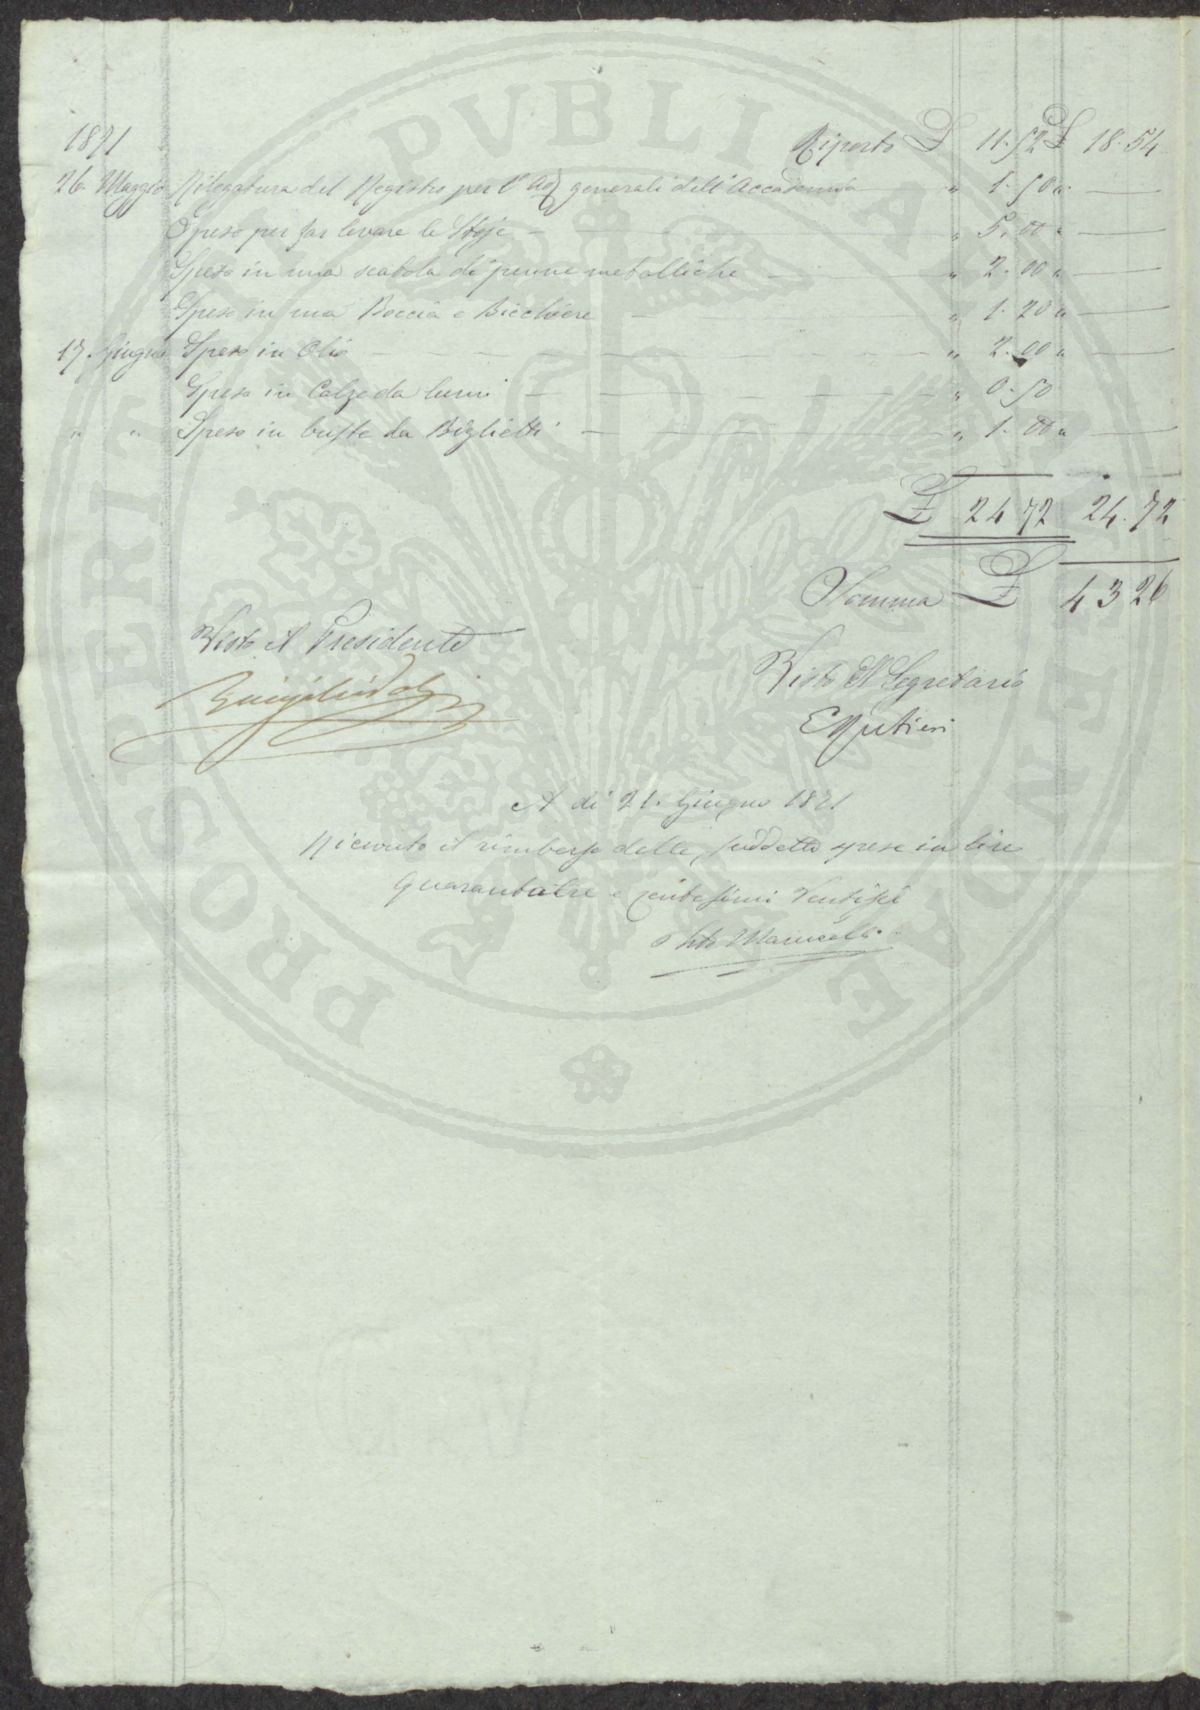 PROSPERITATI PVBLICAE AVGENDAE
1871 Riporto £ 11.52 £ 18.54
26. Maggio Rilegatura del Registro per l' Adᶻᵉ generali dell'Accademia " 1.50 " —
Spese per far levare le Stoje — " 5.00 " —
Spesa in una scatola di penne metalliche — " 2.00 " —
Spesa in una Boccia e Bicchiere — " 1.20 " —
17. Giugno Spesa in Olio — " 2.00 " —
Spesa in Calze da lumi — " 0.50
" " Spesa in buste da Biglietti — " 1.00 " —
£ 24 72 24.72
Somma £ 43 26
Visto Il Presidente
Visto Il Segretario
A di 21. Giugno 1871
Ricevuto il rimborso delle suddette spese in lire
Quarantatre e centesimi Ventisei
Marucelli